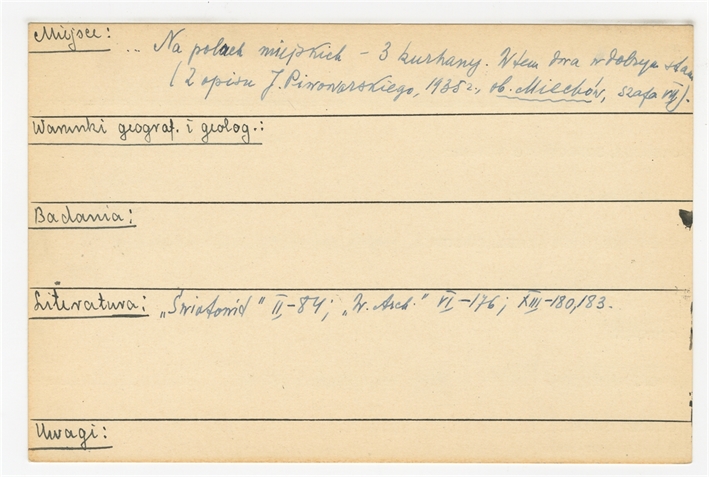 Miejsce:
... Na polach miejskich – 3 kurhany. W tem dwa w dobrym stanie
(Z opisu J. Piwowarskiego, 1938 r., ob. Miechów, szafa VII).
Warunki geograf. i geolog.:
Badania:
Literatura: „Światowid" II–84; „W. Arch." VI–176; XIII–180,183.
Uwagi: